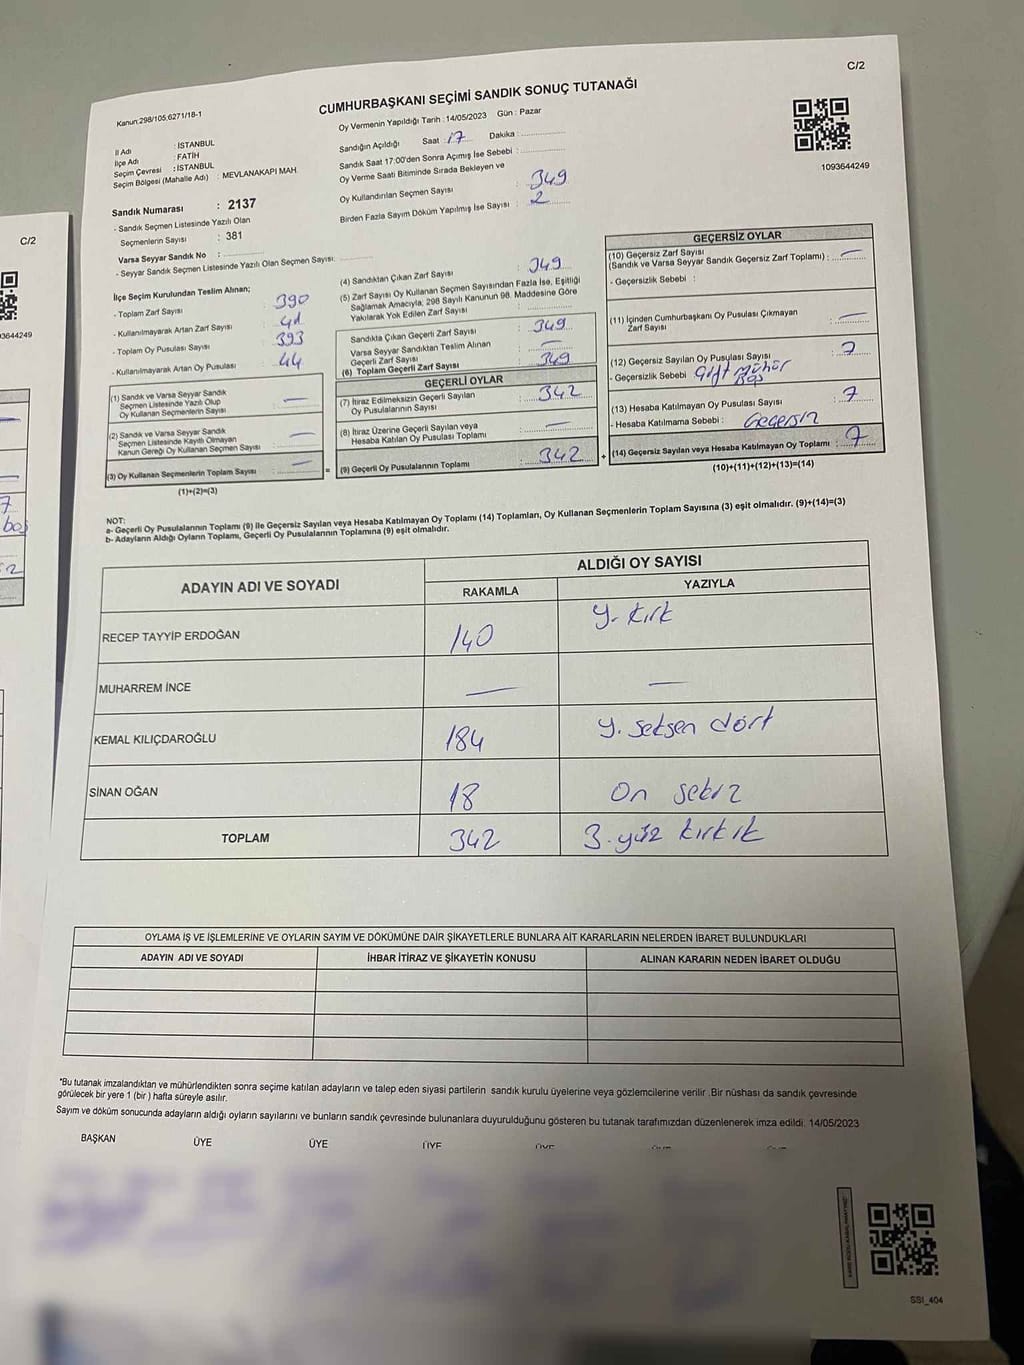 C/2
CUMHURBAŞKANI SEÇİMİ SANDIK SONUÇ TUTANAĞI
Kanun:298/105,6271/18-1
Oy Vermenin Yapıldığı Tarih : 14/05/2023 Gün : Pazar
İl Adı : İSTANBUL
İlçe Adı : FATİH
Seçim Çevresi : İSTANBUL
Seçim Bölgesi (Mahalle Adı) : MEVLANAKAPI MAH.
Sandığın Açıldığı Saat : 17 Dakika :
Sandık Saat 17:00'den Sonra Açımış İse Sebebi :
Oy Verme Saati Bitiminde Sırada Bekleyen ve
Oy Kullandırılan Seçmen Sayısı : 349
Birden Fazla Sayım Döküm Yapılmış İse Sayısı : 2
1093644249
Sandık Numarası : 2137
- Sandık Seçmen Listesinde Yazılı Olan
Seçmenlerin Sayısı : 381
Varsa Seyyar Sandık No :
- Seyyar Sandık Seçmen Listesinde Yazılı Olan Seçmen Sayısı:
İlçe Seçim Kurulundan Teslim Alınan;
- Toplam Zarf Sayısı : 390
- Kullanılmayarak Artan Zarf Sayısı : 41
- Toplam Oy Pusulası Sayısı : 393
- Kullanılmayarak Artan Oy Pusulası : 44
(1) Sandık ve Varsa Seyyar Sandık
Seçmen Listesinde Yazılı Olup
Oy Kullanan Seçmenlerin Sayısı : —
(2) Sandık ve Varsa Seyyar Sandık
Seçmen Listesinde Kayıtlı Olmayan
Kanun Gereği Oy Kullanan Seçmen Sayısı : —
(3) Oy Kullanan Seçmenlerin Toplam Sayısı : —
(1)+(2)=(3)
(4) Sandıktan Çıkan Zarf Sayısı : 349
(5) Zarf Sayısı Oy Kullanan Seçmen Sayısından Fazla İse, Eşitliği
Sağlamak Amacıyla, 298 Sayılı Kanunun 98. Maddesine Göre
Yakılarak Yok Edilen Zarf Sayısı :
Sandıkta Çıkan Geçerli Zarf Sayısı : 349
Varsa Seyyar Sandıktan Teslim Alınan
Geçerli Zarf Sayısı : —
(6) Toplam Geçerli Zarf Sayısı : 349
GEÇERLİ OYLAR
(7) İtiraz Edilmeksizin Geçerli Sayılan
Oy Pusulalarının Sayısı : 342
(8) İtiraz Üzerine Geçerli Sayılan veya
Hesaba Katılan Oy Pusulası Toplamı : —
= (9) Geçerli Oy Pusulalarının Toplamı : 342 +
GEÇERSİZ OYLAR
(10) Geçersiz Zarf Sayısı
(Sandık ve Varsa Seyyar Sandık Geçersiz Zarf Toplamı) : —
- Geçersizlik Sebebi :
(11) İçinden Cumhurbaşkanı Oy Pusulası Çıkmayan
Zarf Sayısı : —
(12) Geçersiz Sayılan Oy Pusulası Sayısı : 7
- Geçersizlik Sebebi : Çift mühür
Boş
(13) Hesaba Katılmayan Oy Pusulası Sayısı : 7
- Hesaba Katılmama Sebebi : Geçersiz
(14) Geçersiz Sayılan veya Hesaba Katılmayan Oy Toplamı : 7
(10)+(11)+(12)+(13)=(14)
NOT:
a- Geçerli Oy Pusulalarının Toplamı (9) ile Geçersiz Sayılan veya Hesaba Katılmayan Oy Toplamı (14) Toplamları, Oy Kullanan Seçmenlerin Toplam Sayısına (3) eşit olmalıdır. (9)+(14)=(3)
b- Adayların Aldığı Oyların Toplamı, Geçerli Oy Pusulalarının Toplamına (9) eşit olmalıdır.
ADAYIN ADI VE SOYADI
ALDIĞI OY SAYISI
RAKAMLA YAZIYLA
RECEP TAYYİP ERDOĞAN 140 Y. kırk
MUHARREM İNCE — —
KEMAL KILIÇDAROĞLU 184 Y. seksen dört
SİNAN OĞAN 18 On sekiz
TOPLAM 342 3. yüz kırk ik
OYLAMA İŞ VE İŞLEMLERİNE VE OYLARIN SAYIM VE DÖKÜMÜNE DAİR ŞİKAYETLERLE BUNLARA AİT KARARLARIN NELERDEN İBARET BULUNDUKLARI
ADAYIN ADI VE SOYADI İHBAR İTİRAZ VE ŞİKAYETİN KONUSU ALINAN KARARIN NEDEN İBARET OLDUĞU
"Bu tutanak imzalandıktan ve mühürlendikten sonra seçime katılan adayların ve talep eden siyasi partilerin sandık kurulu üyelerine veya gözlemcilerine verilir .Bir nüshası da sandık çevresinde
görülecek bir yere 1 (bir ) hafta süreyle asılır.
Sayım ve döküm sonucunda adayların aldığı oyların sayılarını ve bunların sandık çevresinde bulunanlara duyurulduğunu gösteren bu tutanak tarafımızdan düzenlenerek imza edildi. 14/05/2023
BAŞKAN ÜYE ÜYE ÜYE ÜYE
SSI_404
C/2
3644249
7
boş